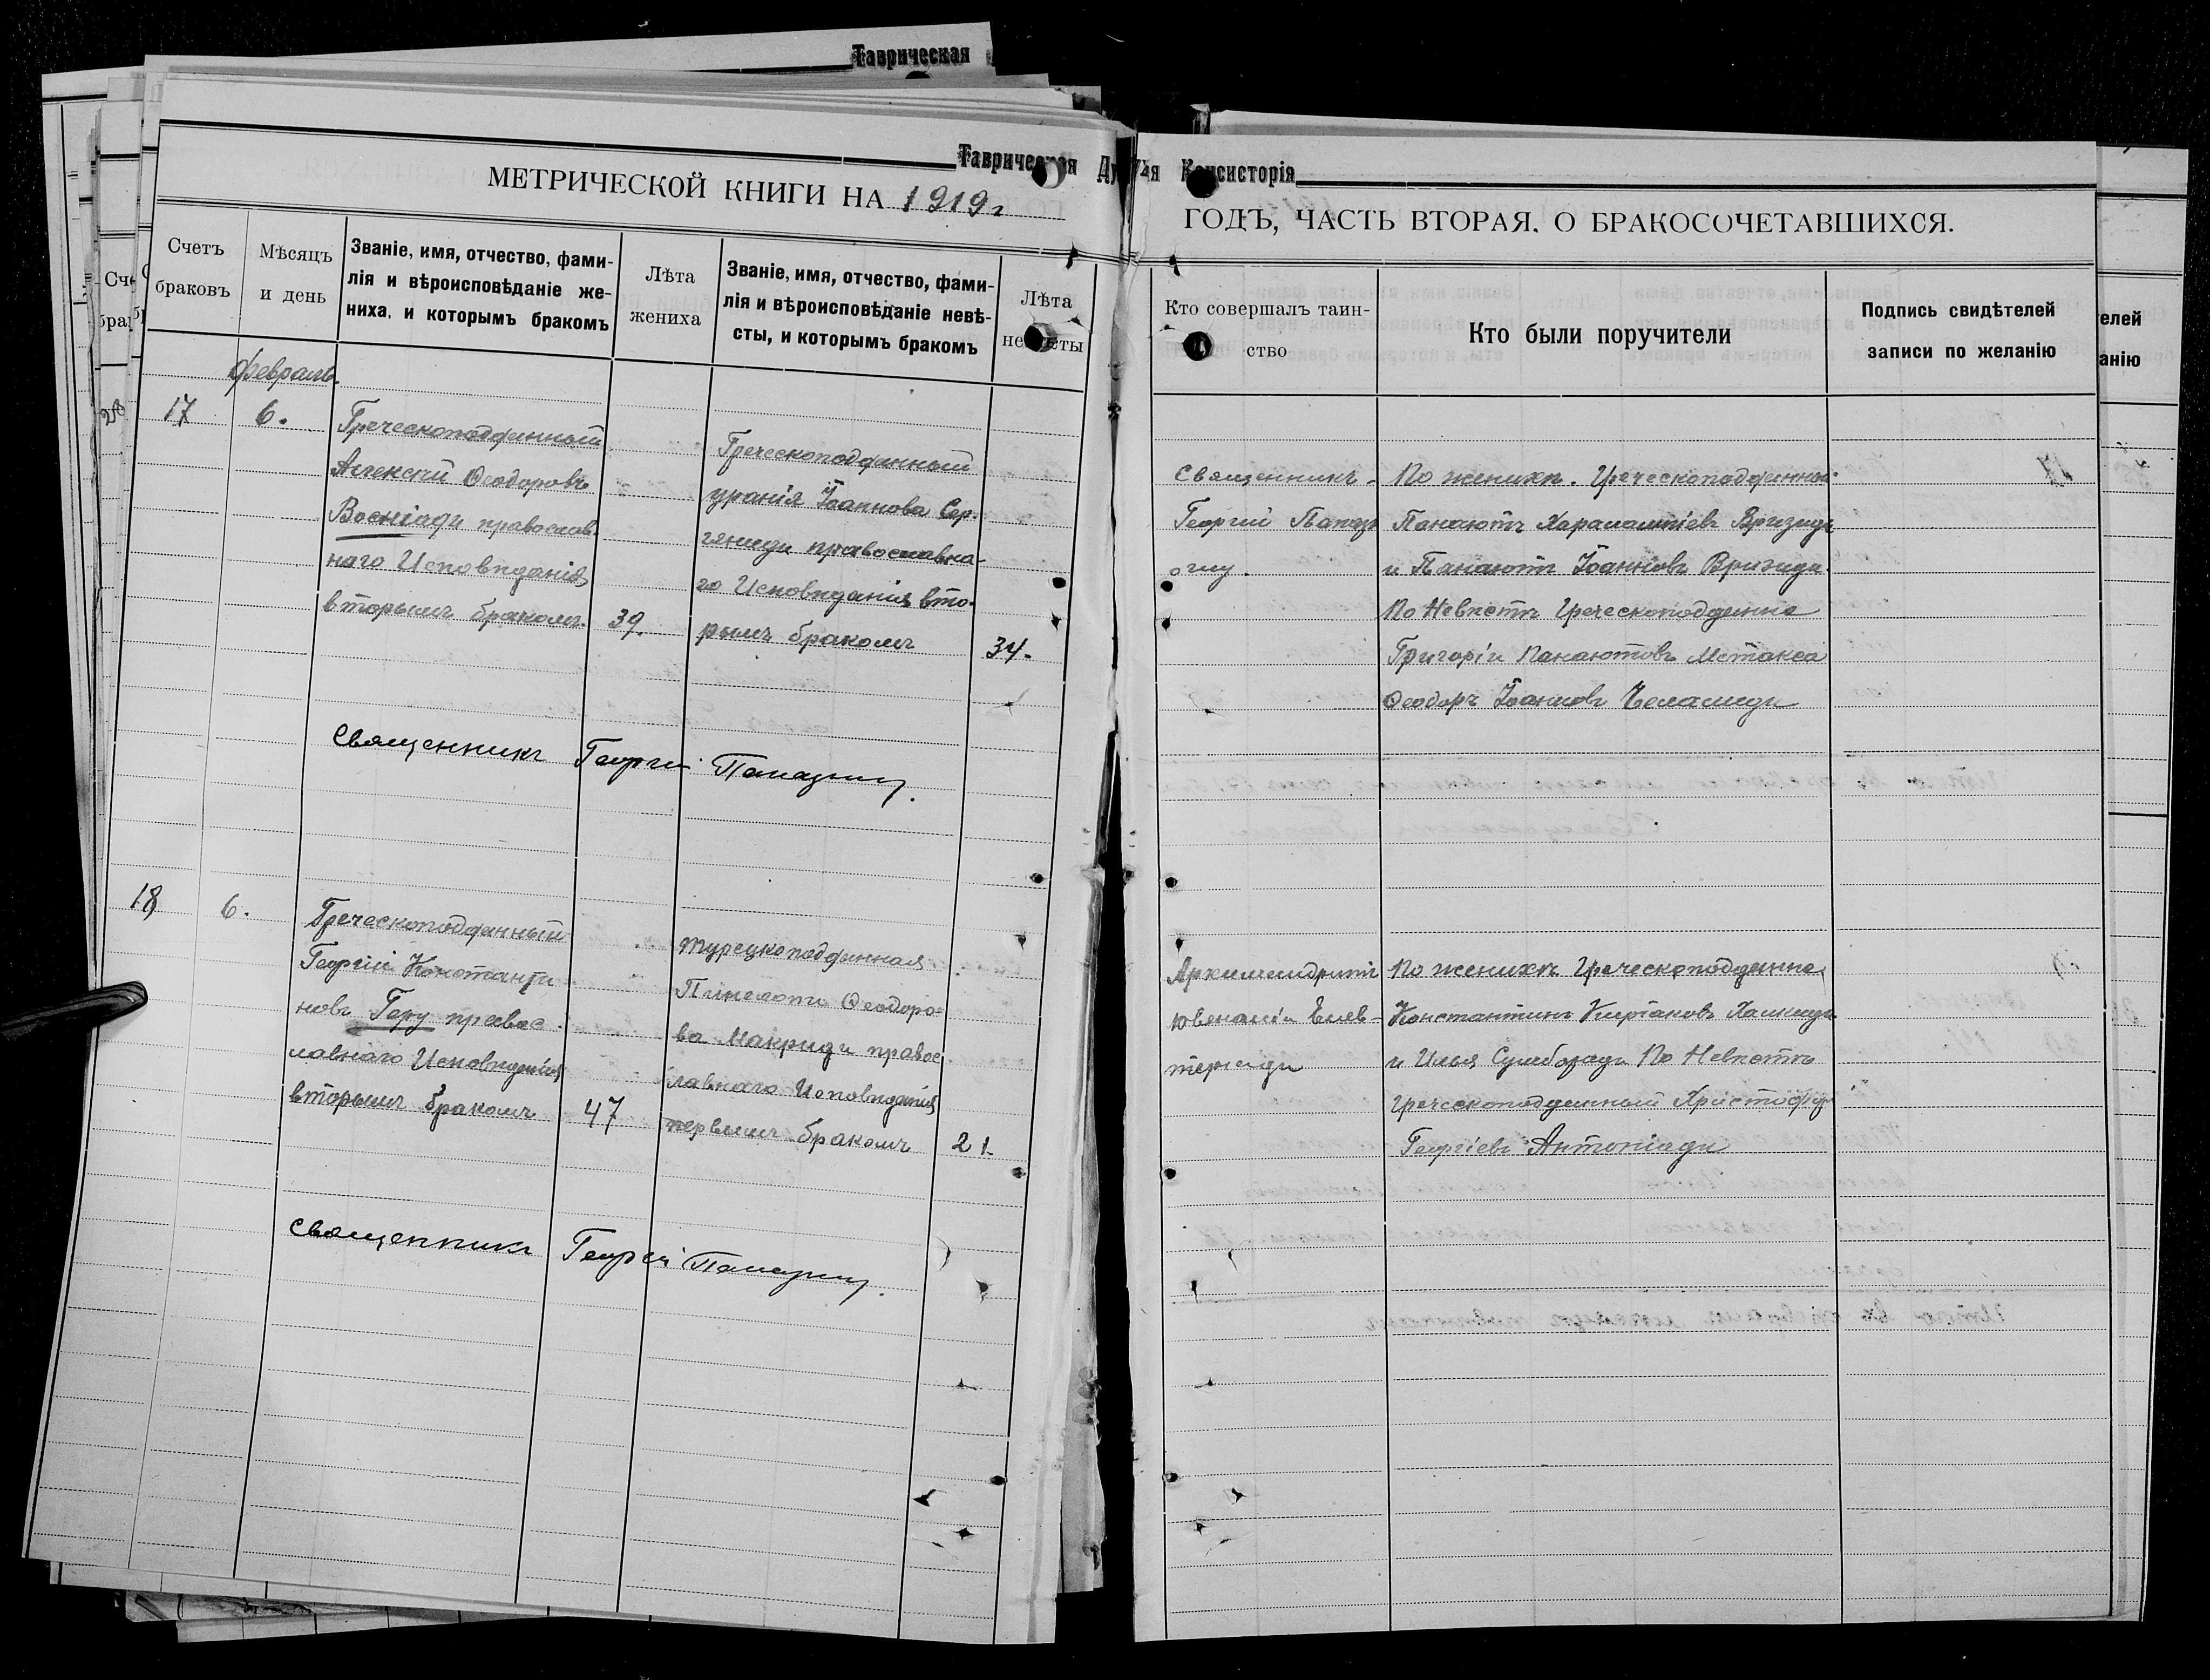 Таврическая
Таврическая Ду ая Консисторія
МЕТРИЧЕСКОЙ КНИГИ НА 1919 г
ГОДЪ, ЧАСТЬ ВТОРАЯ, О БРАКОСОЧЕТАВШИХСЯ.
Счетъ
браковъ
Мѣсяцъ
и день
Званіе, имя, отчество, фами-
лія и вѣроисповѣданіе же-
ниха, и которымъ бракомъ
Лѣта
жениха
Званіе, имя, отчество, фами-
лія и вѣроисповѣданіе невѣ-
сты, и которымъ бракомъ
Лѣта
не сты
Кто совершалъ таин-
ство
Кто были поручители
Подпись свидѣтелей
записи по желанію
елей
анію
Февраль.
17
6.
Греческоподданный
Алексій Ѳеодоровъ
Восніади православ-
наго Исповѣданія
вторымъ бракомъ.
39.
Греческоподданный
уранія Іоаннова Сер-
гяниди православна-
го Исповѣданія вто-
рымъ бракомъ
34.
Священникъ
Георгій Папаз-
оглу.
По женихѣ. Греческоподданной
Панаютъ Харалампіевъ Вризиди
и Панаютъ Іоанновъ Вризиди.
По Невѣстѣ Греческоподданне
Григорій Панаютовъ Метакса
Ѳеодоръ Іоанновъ Челаниди
Священникъ Георгій
18
6.
Греческоподданный
Георгій Константи
новъ Геру правос
лавнаго Исповѣданія
вторымъ бракомъ
47
турецкоподданная
Пинелопи Ѳеодоро-
ва Макриди правос
лавнаго Исповѣданія
первымъ бракомъ
21.
Архимандритъ
Ювеналій Елев-
териади
По женихѣ Греческоподданне
Константинъ Киріаковъ
и Илья По Невѣстѣ
Греческоподданный Христофоръ
Георгіевъ Антоніади
Священникъ Георгій